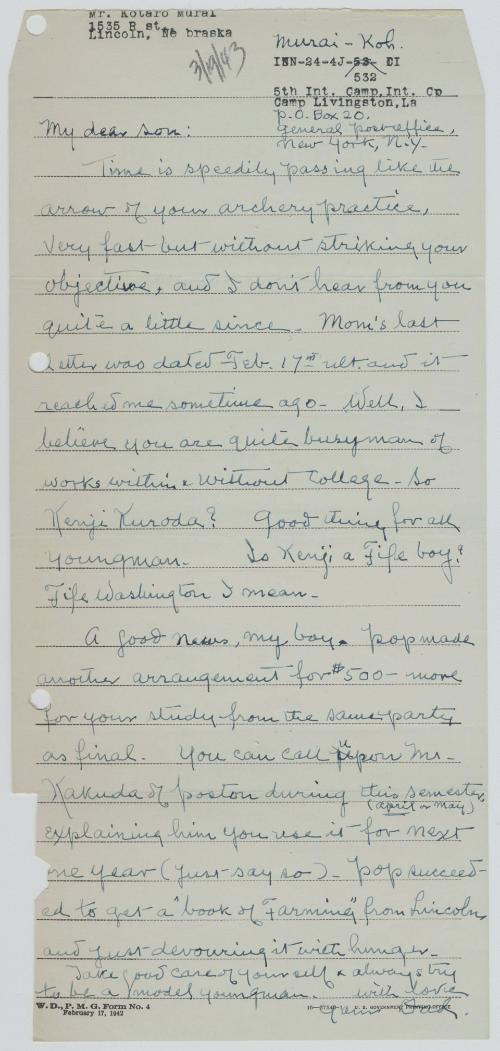 Mr. Kotaro Murai
1535 R st.,
Lincoln, Ne braska
3/19/43
Murai - Koh.
ISN-24-4J-53- CI
532
5th Int. Camp, Int. Co
Camp Livingston, La
P.O. Box 20.
General post office,
New York, N.Y.
My dear son:
Time is speedily passing like the
arrow of your archery practice,
very fast but without striking your
objective, and I don't hear from you
quite a little since - Mom's last
letter was dated Feb. 17th ult. and it
reached me sometime ago - Well, I
believe you are quite busy man of
works within & without College - So
Kenji Kuroda? Good thing for all
youngman. Is Kenji a Fife boy?
Fife Washington I mean -
A good news, my boy. Pop made
another arrangement for $500 - more
for your study from the same party
as final. You can call upon Mr.
Kakuda of poston during this semester,
(april or may)
explaining him you use it for next
one year (just say so) - Pop succeed-
ed to get a "book of Farming" from Lincoln
and just devouring it with hunger -
Take good care of yourself & always try
to be a model youngman. with love
your Dad.
W. D., P. M. G. Form No. 4
February 17, 1942
U. S. GOVERNMENT PRINTING OFFICE